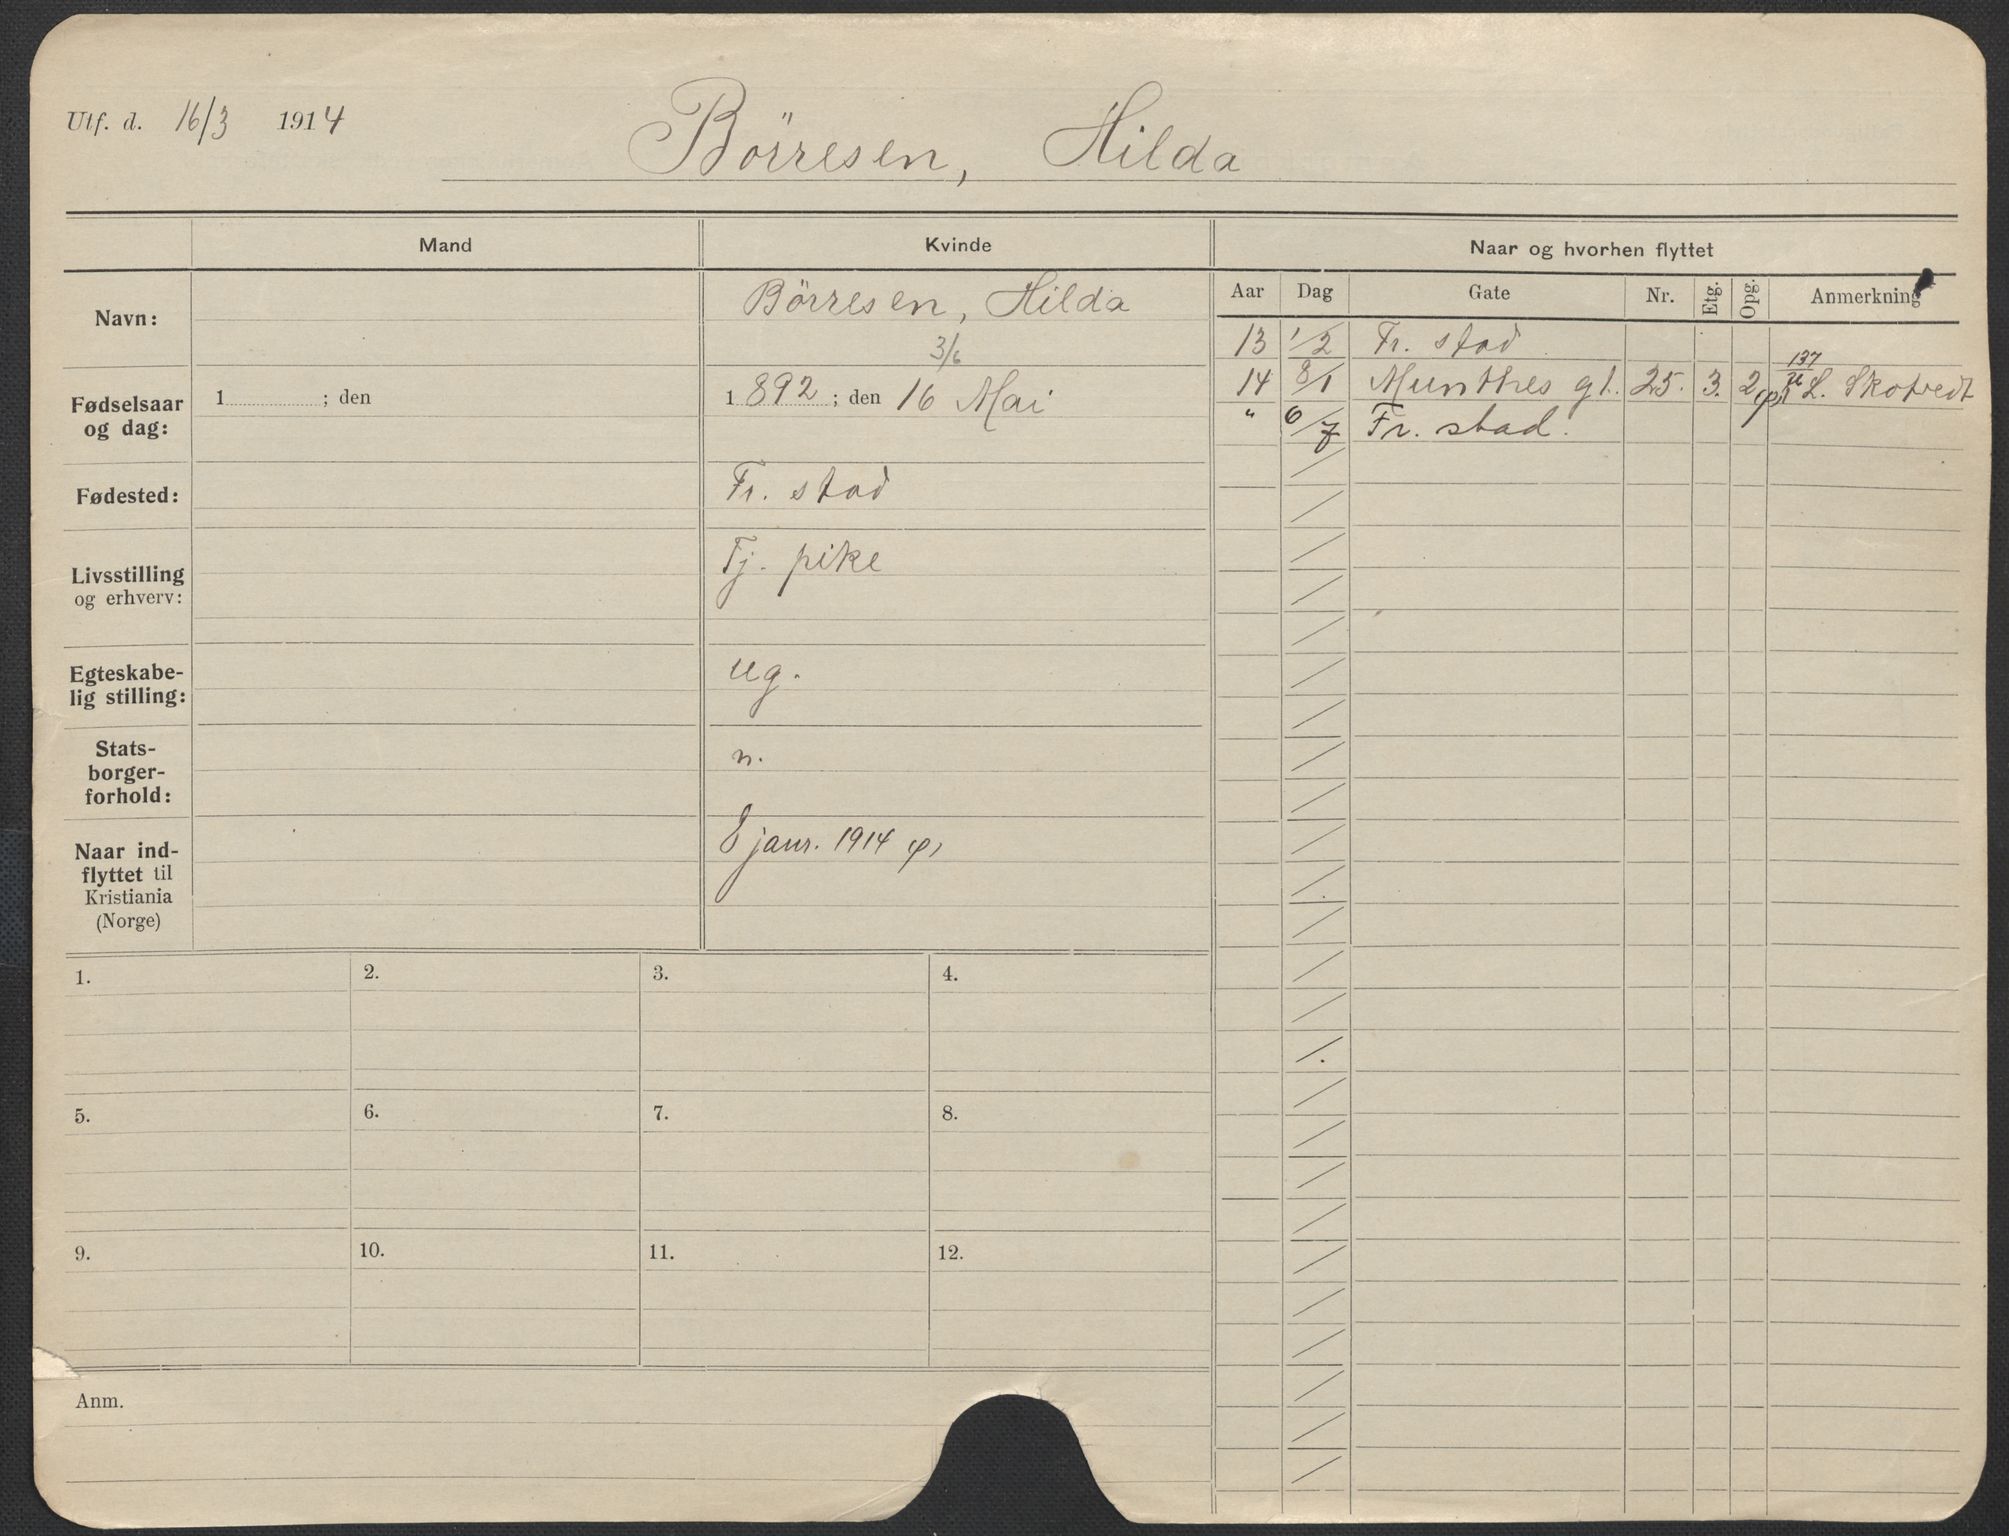 Utf. d. 16/3 1914
Börresen, Hilda
Mand
Kvinde
Naar og hvorhen flyttet
Aar Dag Gate Nr. Etg. Opg. Anmerkning
Navn:
Börresen, Hilda
3/6
Fødselsaar
og dag:
1 ; den
1892 ; den 16 Mai
Fødested:
Fr. stad
Livsstilling
og erhverv:
Tj. pike
Egteskabe-
lig stilling:
ug.
Stats-
borger-
forhold:
n.
Naar ind-
flyttet til
Kristiania
(Norge)
8 janr. 1914
13 1/2 Fr. stad
137
14 8/1 Munthes gt. 25. 3. 2 L. Skotvedt
" 6/7 Fr. stad.
1. 2. 3. 4.
5. 6. 7. 8.
9. 10. 11. 12.
Anm.